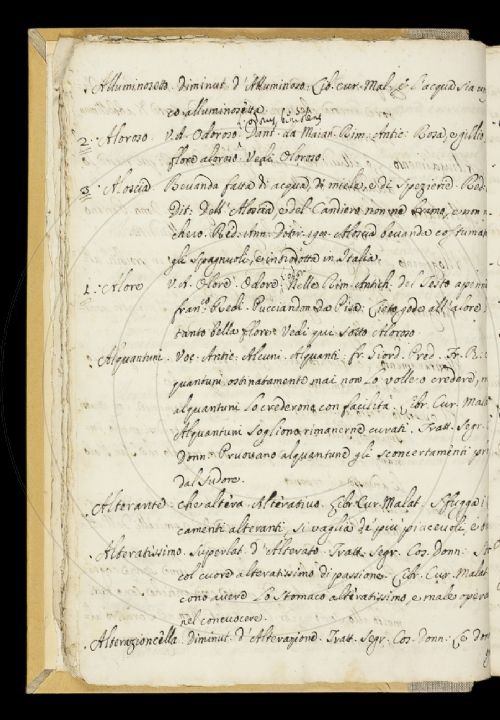 Alluminosetto. Diminut. d'Alluminoso. Lib. cur. Mal. E l'acqua sia un
co alluminosetta.
2. Aloroso. V. A. Odoroso. Dant. da Maian. Rim. Antic. Rosa, e giglio
flore aloroso. Vedi Oloroso.
3. Aloscia Bevanda fatta di acqua, di miele, e di spezierie. Red.
Dit. Dell'Aloscia, e del Candiero non ne bramo, e non
chero. Red. Ann. Ditir. Aloscia bevanda costumat
gli Spagnuoli, e introdotta in Italia.
1. Alore V. A. Olore. Odore. Nelle Rim. Antich. del Testo a penn
fran.co Redi. Pucciandon. da Pisa. Cieto gode all'alore
tanto bella flore. Vedi qui sotto Aloroso
Alquantuni. Voc. Antic. Alcuni. Alquanti. fr. Giord. Pred. Fr. R.
quantuni ostinatamente mai non lo vollero credere, m
alquantuni lo crederono con facilità. Libr. Cur. Malat.
Alquantuni sogliono rimanerne curati. Tratt. Segr.
Donn. Pruovano alquantune gli sconcertamenti pr
dal sudore.
Alterante. che altera. Alterativo. Libr. Cur. Malat. Sfugga i
camenti alteranti, si vaglia de' più piacevoli, e
Alteratissimo. Superlat. d'Alterato. Tratt. Segr. Cos. Donn. S
col cuore alteratissimo di passione. Libr. Cur. Malat.
cono avere lo stomaco alteratissimo, e male opera
nel concuocere.
Alterazioncella. Diminut. d'Alterazione. Tratt. Segr. Cos. Donn. E don